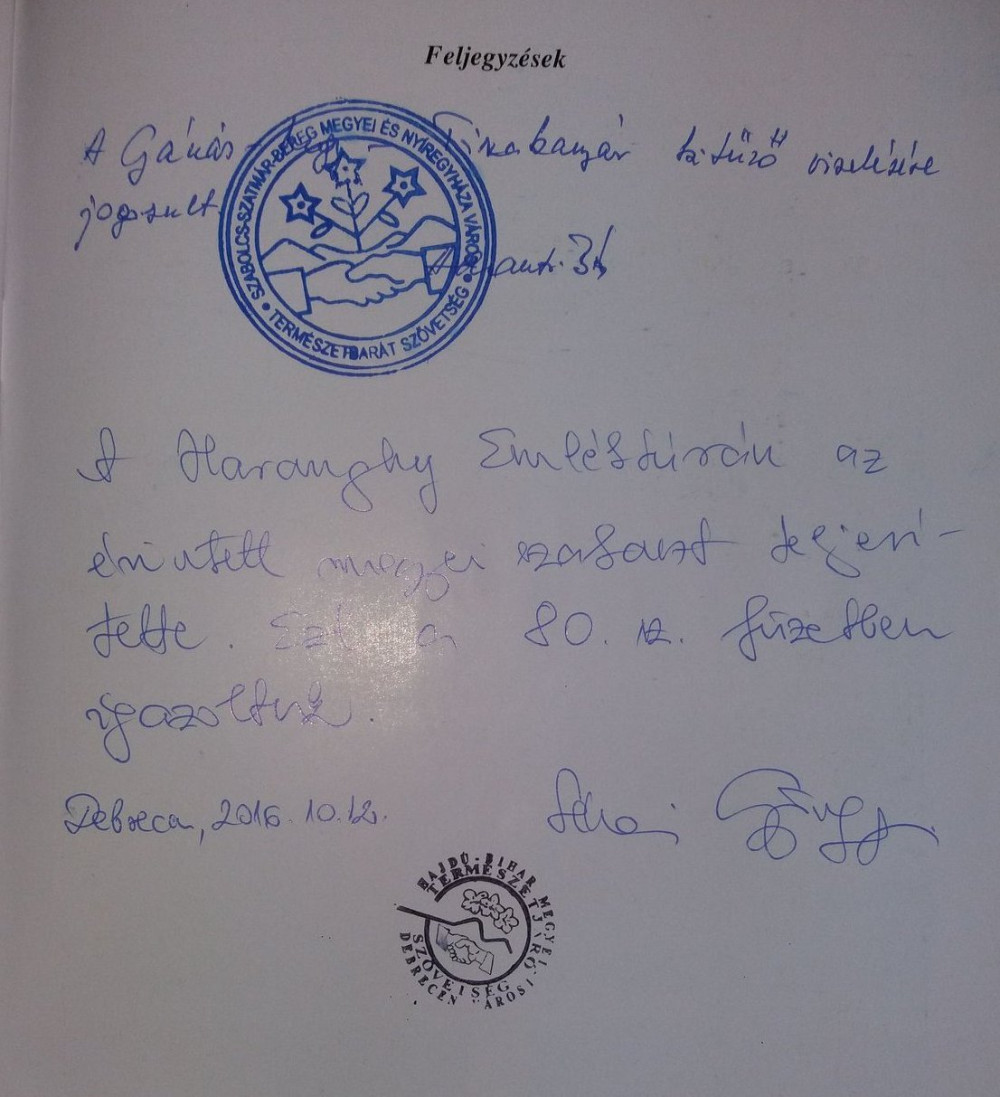 Feljegyzések
A Gávás- Tiszakanyár kitűző viselésére
jogosult.
SZABOLCS-SZATMÁR-BEREG MEGYEI ÉS NYÍREGYHÁZA VÁROSI
• TERMÉSZETBARÁT SZÖVETSÉG •
A Haranghy Emléktúrán az
érintett megyei szakaszt teljesí-
tette. Ezt a 80. sz. füzetben
igazoltuk.
Debrecen, 2016. 10. 12.
HAJDÚ-BIHAR MEGYEI
TERMÉSZETJÁRÓ
SZÖVETSÉG
DEBRECEN VÁROSI